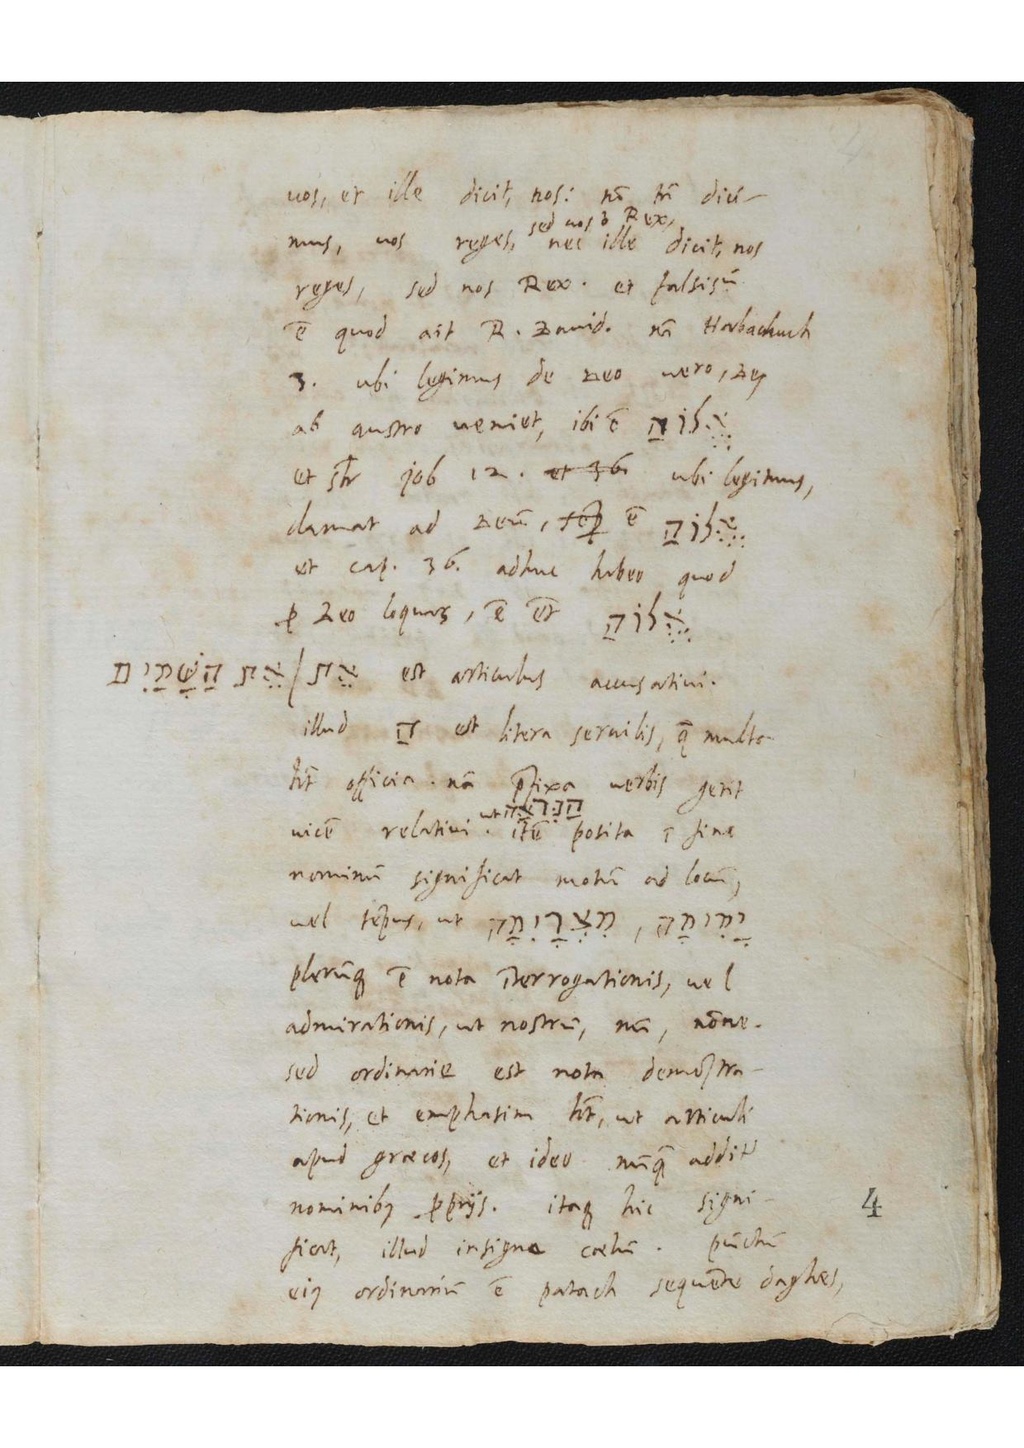 uos, et ille dicit, nos: nō tn̄ dici-
sed uos ō Rex,
mus, uos reges, nec ille dicit, nos
reges, sed nos Rex. et falsisū
ē quod ait R. Dauid. nā Habachuch
3. ubi legimus de Deo uero, Deꝰ
ab austro ueniet, ibi ē אֱלוֹהַ
et job 12. et 36 ubi legimus,
clamat ad Deū, ē אֱלוֹהַ
et cap. 36. adhuc habeo quod
ꝓ Deo loquar, ē et̄ אֱלוֹהַ
אֵת הַשָּׁמַיִם / אֵת est articulus accusatiui.
illud הַ est litera seruilis, q̄ multa
ht̄ officia. nā p̄fixa uerbis gerit
ut הַנִּרְאָה
uicē relatiui. itē posita ī fine
nominū significat motū ad locū,
uel tēpus, ut מִצְרַיְמָה, יָמִימָה
plerūq ē nota īterrogationis, uel
admirationis, ut nostrū, nū, nōne.
sed ordinarie est nota demōstra-
tionis, et emphasim ht̄, ut articuli
apud græcos, et ideo nūq̄ addit
nominibꝰ ꝓprijs. itaq hic signi-
ficat, illud insigne cælū. pūctū
eiꝰ ordinariū ē patach sequēte daghes,
4